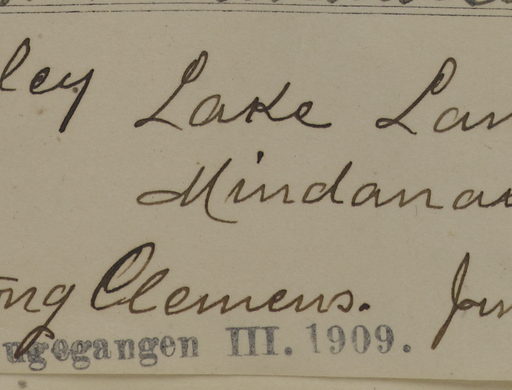 ley Lake Lan
Mindanao
ong Clemens. Jun
ugegangen III. 1909.